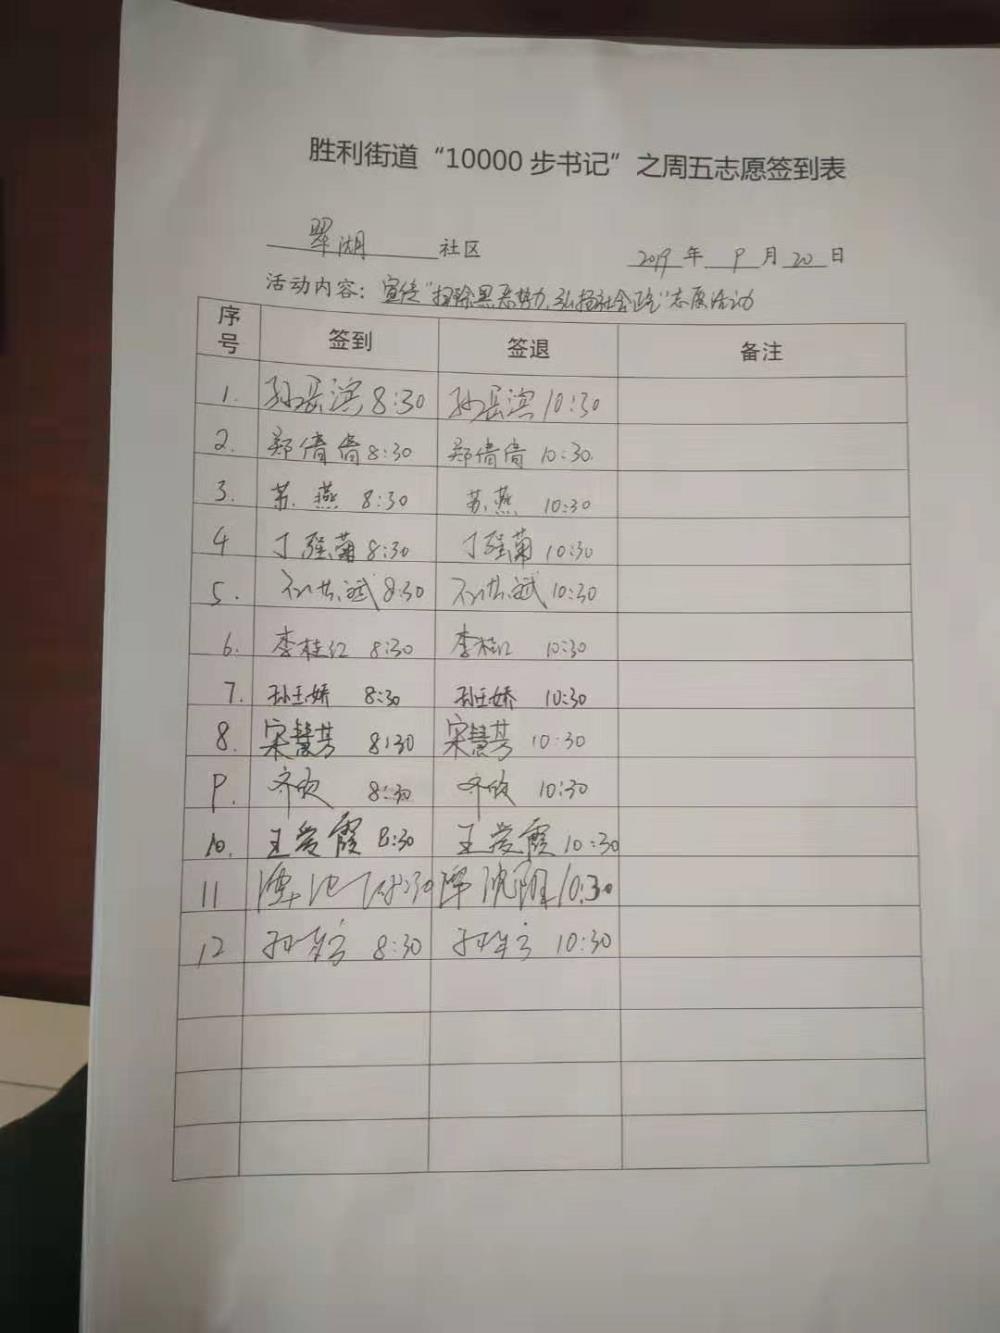 胜利街道“10000步书记”之周五志愿签到表
翠湖 社区 2019年 9月20日
活动内容：宣传“扫除黑恶势力,弘扬社会正气”志愿活动
序号 签到 签退 备注
1. 孙岳滨 8:30 孙岳滨 10:30
2. 郑倩倩 8:30 郑倩倩 10:30.
3. 苏燕 8:30 苏燕 10:30
4 丁强菊 8:30 丁强菊 10:30
5. 8:30 10:30
6. 李桂红 8:30 李桂红 10:30
7. 孙玉娇 8:30 孙玉娇 10:30
8. 宋慧芳 8:30 宋慧芳 10:30
9. 齐欣 8:30 齐欣 10:30
10. 王爱霞 8:30 王爱霞 10:30
11 8:30 10:30
12 8:30 10:30